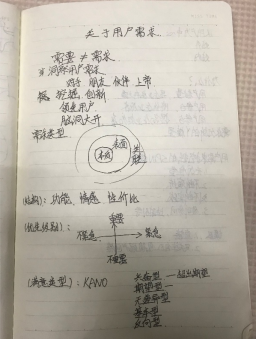 关于用户需求
需要 ≠ 需求
洞察用户需求
对手 朋友 伙伴 上帝
挖掘 创新
领先用户
脑洞大开
需求类型
表面
本质
(结构): 功能、情感、性价比
(优先级别):
重要
很急
紧急
不重要
(满意类型): KANO
兴奋型
期望型
无差异型
基本型
反向型